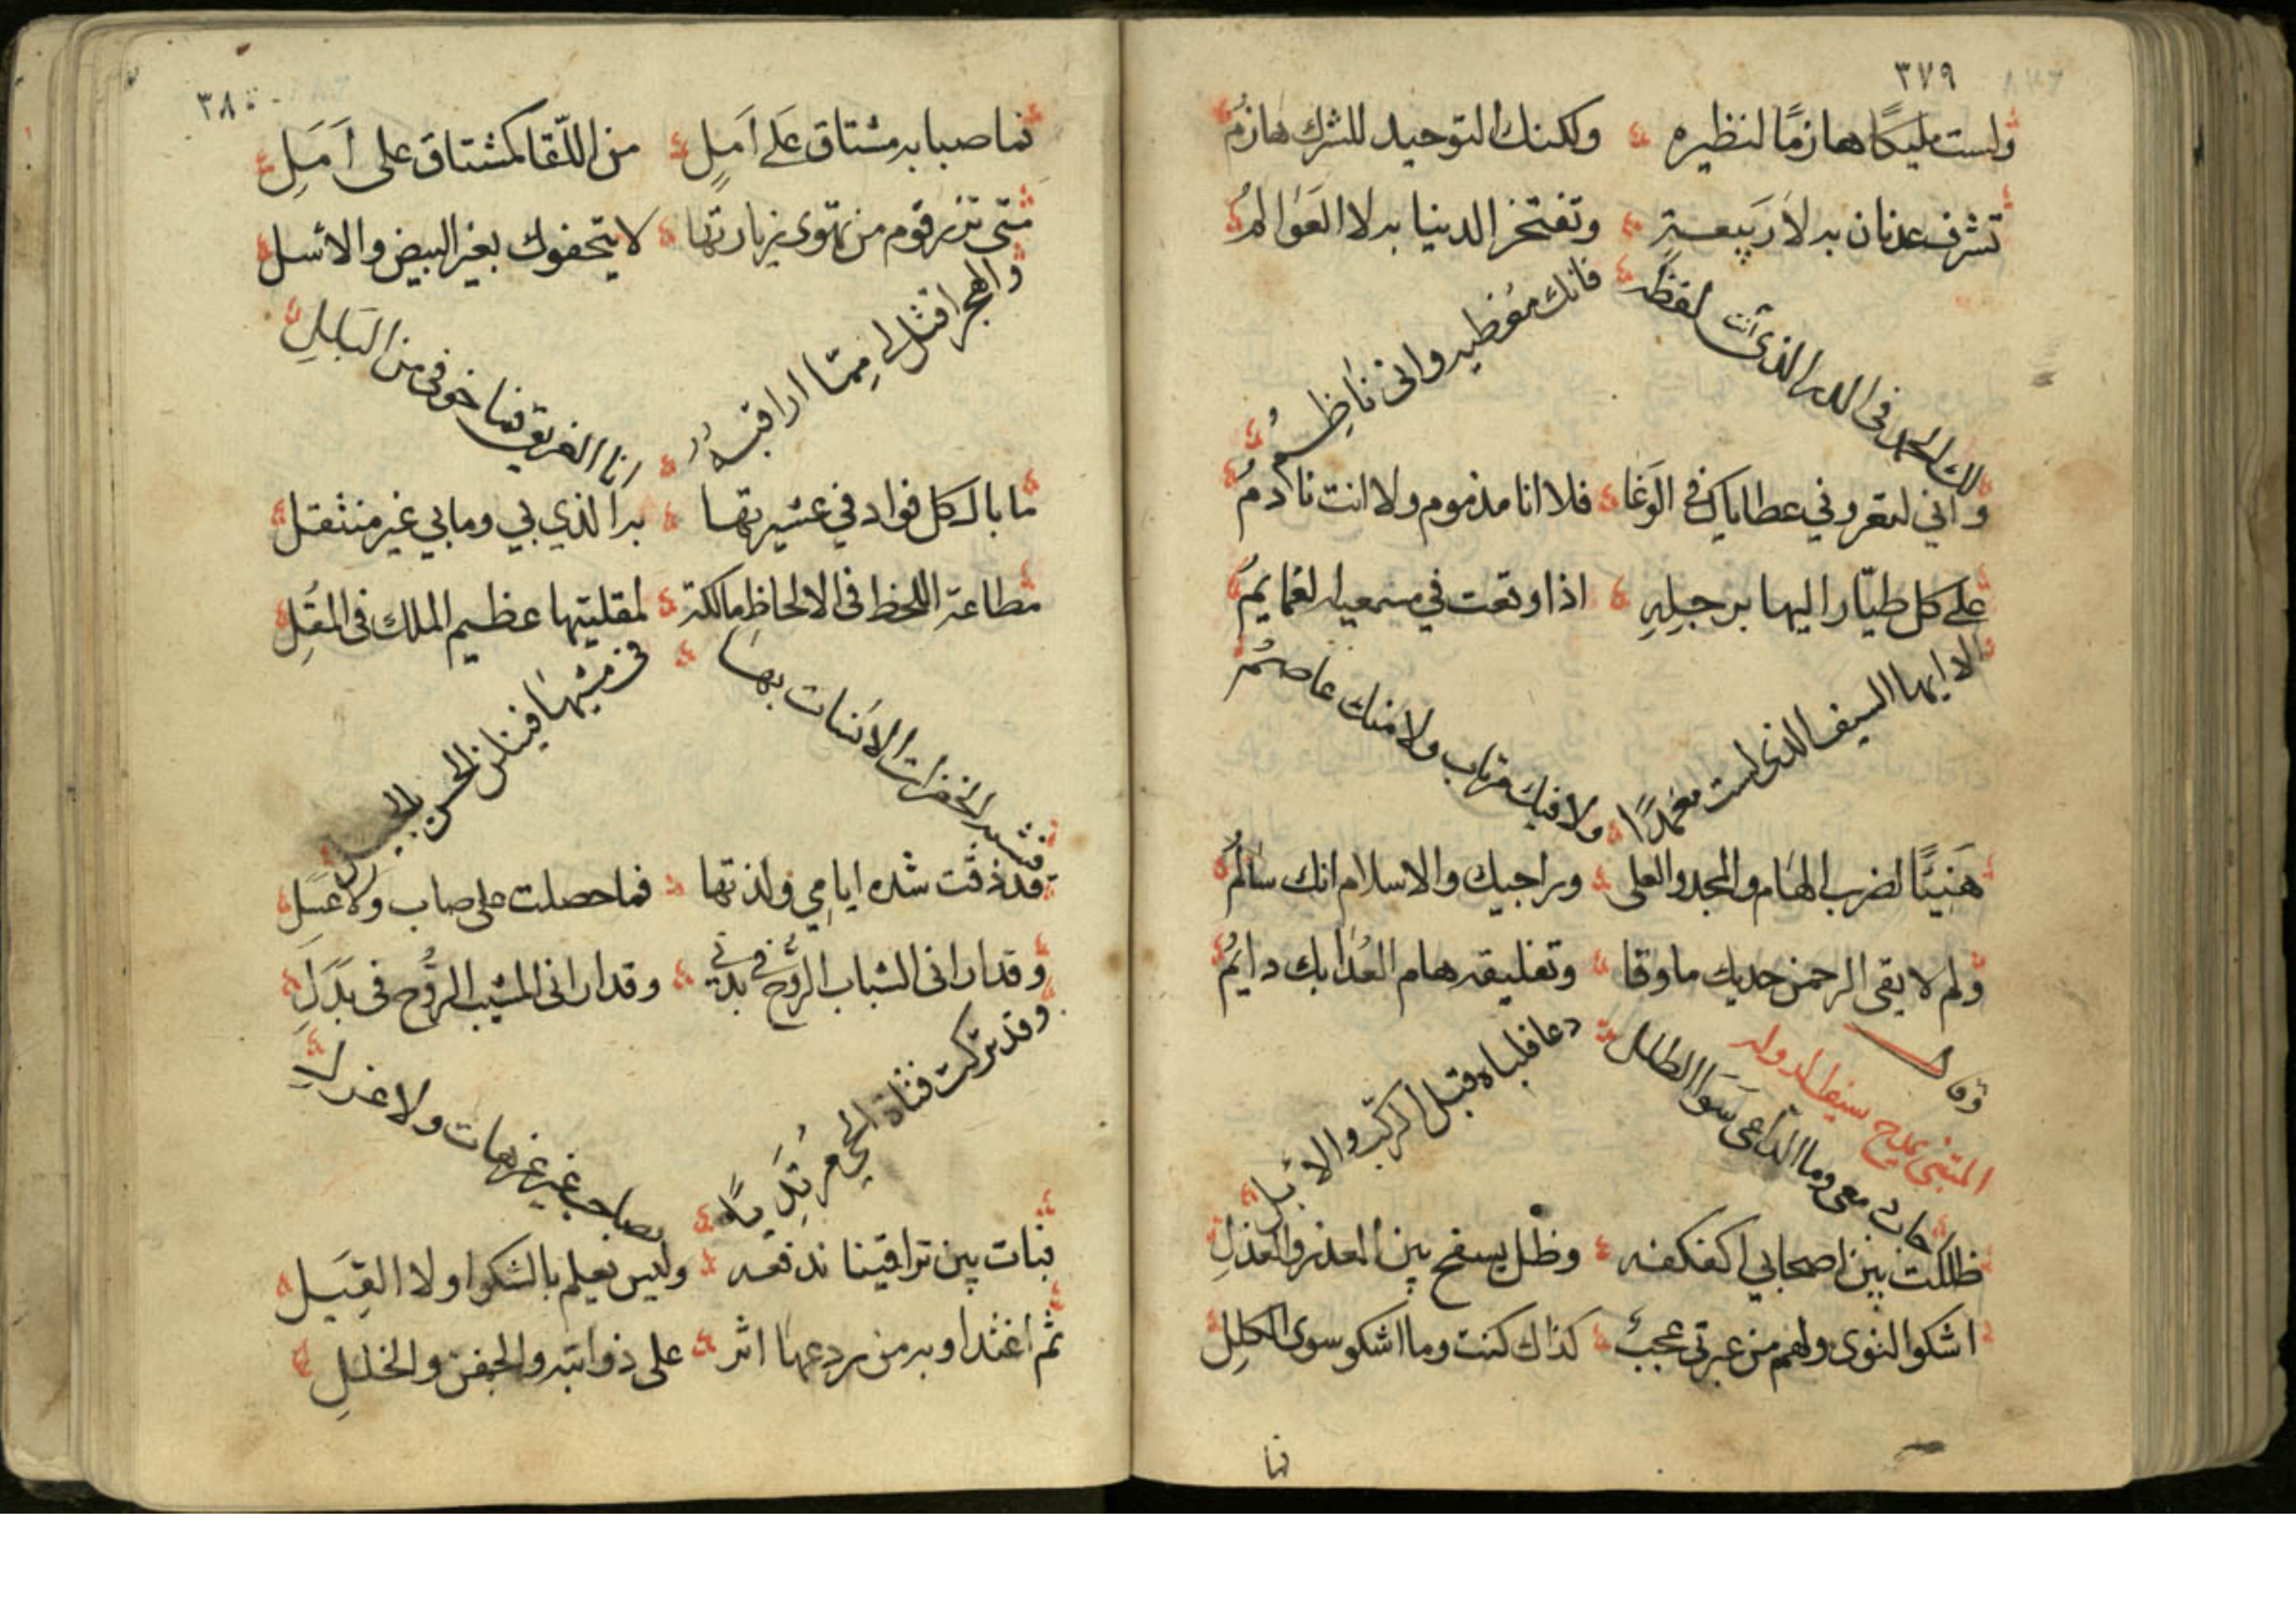 ٣٧٩
ولست مليكًا هازمًا لنظيره ولكنك التوحيد للشرك هازمُ
تشرف عدنان به لا ربيعة وتفتخر الدنيا به لا العَوالمُ
لك الحمد في الدر الذي أنت لفظه فانك معطيه واني ناظِمُ
واني لتعروني عطاياك في الوَغا فلا انا مذموم ولا انت نادمُ
على كل طيّار اليها برجلِهِ اذا وقعت في مسمعيه لغمايمُ
الا ايها السيف الذي لست مغمَدًا ولا فيك مرتاب ولا منك عاصمُ
هَنيئًا لضرب الهام والمجد والعلى وراجيك والاسلام انك سالمُ
ولم لا يقى الرحمن حديك ما وقا وتفليقه هام العُدا بك دايمُ
وقال
المتنبي يمدح سيف الدوله
اجاب دمعي وما الدّاعي سَوَا الطلل دعا فلباه قبل الركب والابل
ظللت بين اصحابي اكفكفه وظل يسفح بين العذر والعذلِ
اشكو النوى ولهم من عبرتي عجبٌ كذاك كنت وما اشكو سوى الكللِ
فما
٣٨٠
فما صبابه مشتاق عَلى اَمَلٍ من اللّقا كمشتاق على اَمَلِ
متى تزر قوم من تهوى زيارتها لا يتحفوك بغير البيض والاسل
والهجر اقتل لي ممّا اراقبه انا الغريق فما خوفي من البَلَلِ
ما بال كل فواد في عشيرتها به الذي بي وما بي غير منتقل
مطاعة اللحظ في الالحاظِ مالكة لمقلتيها عظيم الملك في المقَلِ
تشبه الخفرات الآنسات بها في مشيها فينلن الحسن بالحيل
قد ذقت شده ايامي ولذتها فما حصلت على صاب ولا عَسَل
وقد اراني الشباب الرُّوح في بدني وقد اراني المشيب الرُّوح في بَدَلِ
وقد تركت فتاة الحي مرتَدِيًا بصاحب غير عزهات ولا غزل
فبات بين تراقينا ندفعه وليس يعلم بالشكوا ولا القُبَل
ثم اغتدا وبه من ردعها اثر على ذوابته والجفن والخللِ